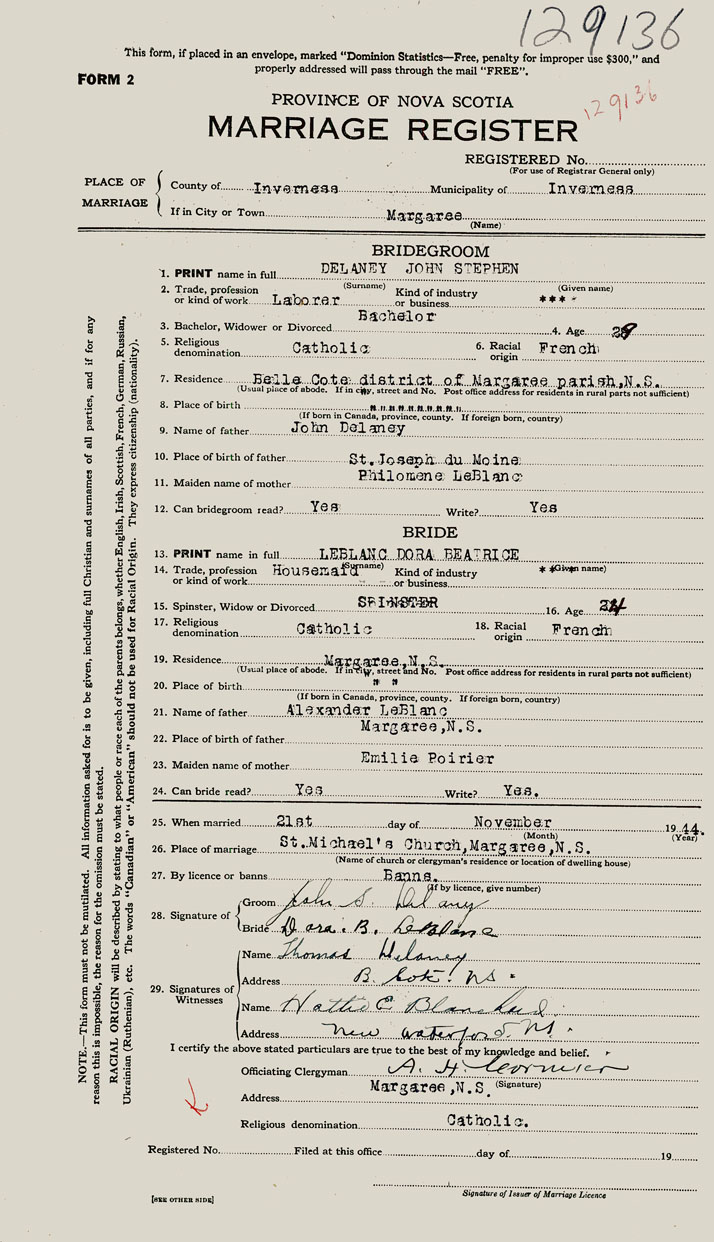 129136
This form, if placed in an envelope, marked "Dominion Statistics—Free, penalty for improper use $300," and
properly addressed will pass through the mail "FREE".
FORM 2
129136
PROVINCE OF NOVA SCOTIA
MARRIAGE REGISTER
REGISTERED No.
(For use of Registrar General only)
PLACE OF MARRIAGE
County of Inverness Municipality of Inverness
If in City or Town Margaree
(Name)
BRIDEGROOM
1. PRINT name in full DELANEY JOHN STEPHEN
(Surname) (Given name)
2. Trade, profession or kind of work Laborer Kind of industry or business ***
3. Bachelor, Widower or Divorced Bachelor 4. Age
5. Religious denomination Catholic 6. Racial origin French
7. Residence Belle Cote district of Margaree parish,N.S.
(Usual place of abode. If in city, street and No. Post office address for residents in rural parts not sufficient)
8. Place of birth " " " " " " " " "
(If born in Canada, province, county. If foreign born, country)
9. Name of father John Delaney
10. Place of birth of father St.Joseph du Moine
11. Maiden name of mother Philomene LeBlanc
12. Can bridegroom read? Yes Write? Yes
BRIDE
13. PRINT name in full LEBLANC DORA BEATRICE
(Surname) (Given name)
14. Trade, profession or kind of work Housemaid Kind of industry or business * *
15. Spinster, Widow or Divorced SPINSTER 16. Age 24
17. Religious denomination Catholic 18. Racial origin French
19. Residence Margaree,N.S.
(Usual place of abode. If in city, street and No. Post office address for residents in rural parts not sufficient)
20. Place of birth " "
(If born in Canada, province, county. If foreign born, country)
21. Name of father Alexander LeBlanc
22. Place of birth of father Margaree,N.S.
23. Maiden name of mother Emilie Poirier
24. Can bride read? Yes Write? Yes.
25. When married 21st day of November 1944.
(Month) (Year)
26. Place of marriage St.Michael's Church,Margaree,N.S.
(Name of church or clergyman's residence or location of dwelling house)
27. By licence or banns Banns.
(If by licence, give number)
28. Signature of
Groom John S. Delany
Bride Dora. B. LeBlanc
29. Signatures of Witnesses
Name Thomas Delaney
Address B. Cot. NS.
Name Hattie E Blanchard.
Address New Waterford. NS.
I certify the above stated particulars are true to the best of my knowledge and belief.
Officiating Clergyman A. H. Cormier
(Signature)
Address Margaree,N.S.
Religious denomination Catholic.
Registered No. Filed at this office day of 19
Signature of Issuer of Marriage Licence
[SEE OTHER SIDE]
NOTE.—This form must not be mutilated. All information asked for is to be given, including full Christian and surnames of all parties, and if for any
reason this is impossible, the reason for the omission must be stated.
RACIAL ORIGIN will be described by stating to what people or race each of the parents belongs, whether English, Irish, Scottish, French, German, Russian,
Ukrainian (Ruthenian), etc. The words "Canadian" or "American" should not be used for Racial Origin. They express citizenship (nationality).